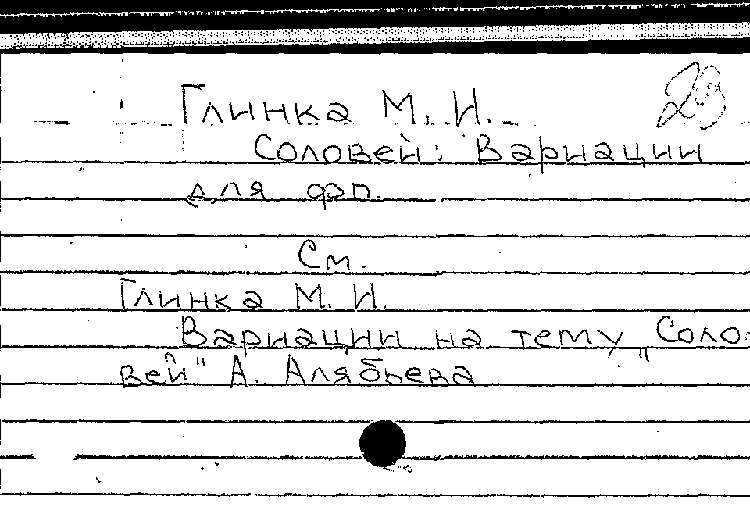 Глинка М. И.
Соловей: Вариации
для фп.
См.
Глинка М. И.
Вариации на тему „Соло-
вей" А. Алябьева